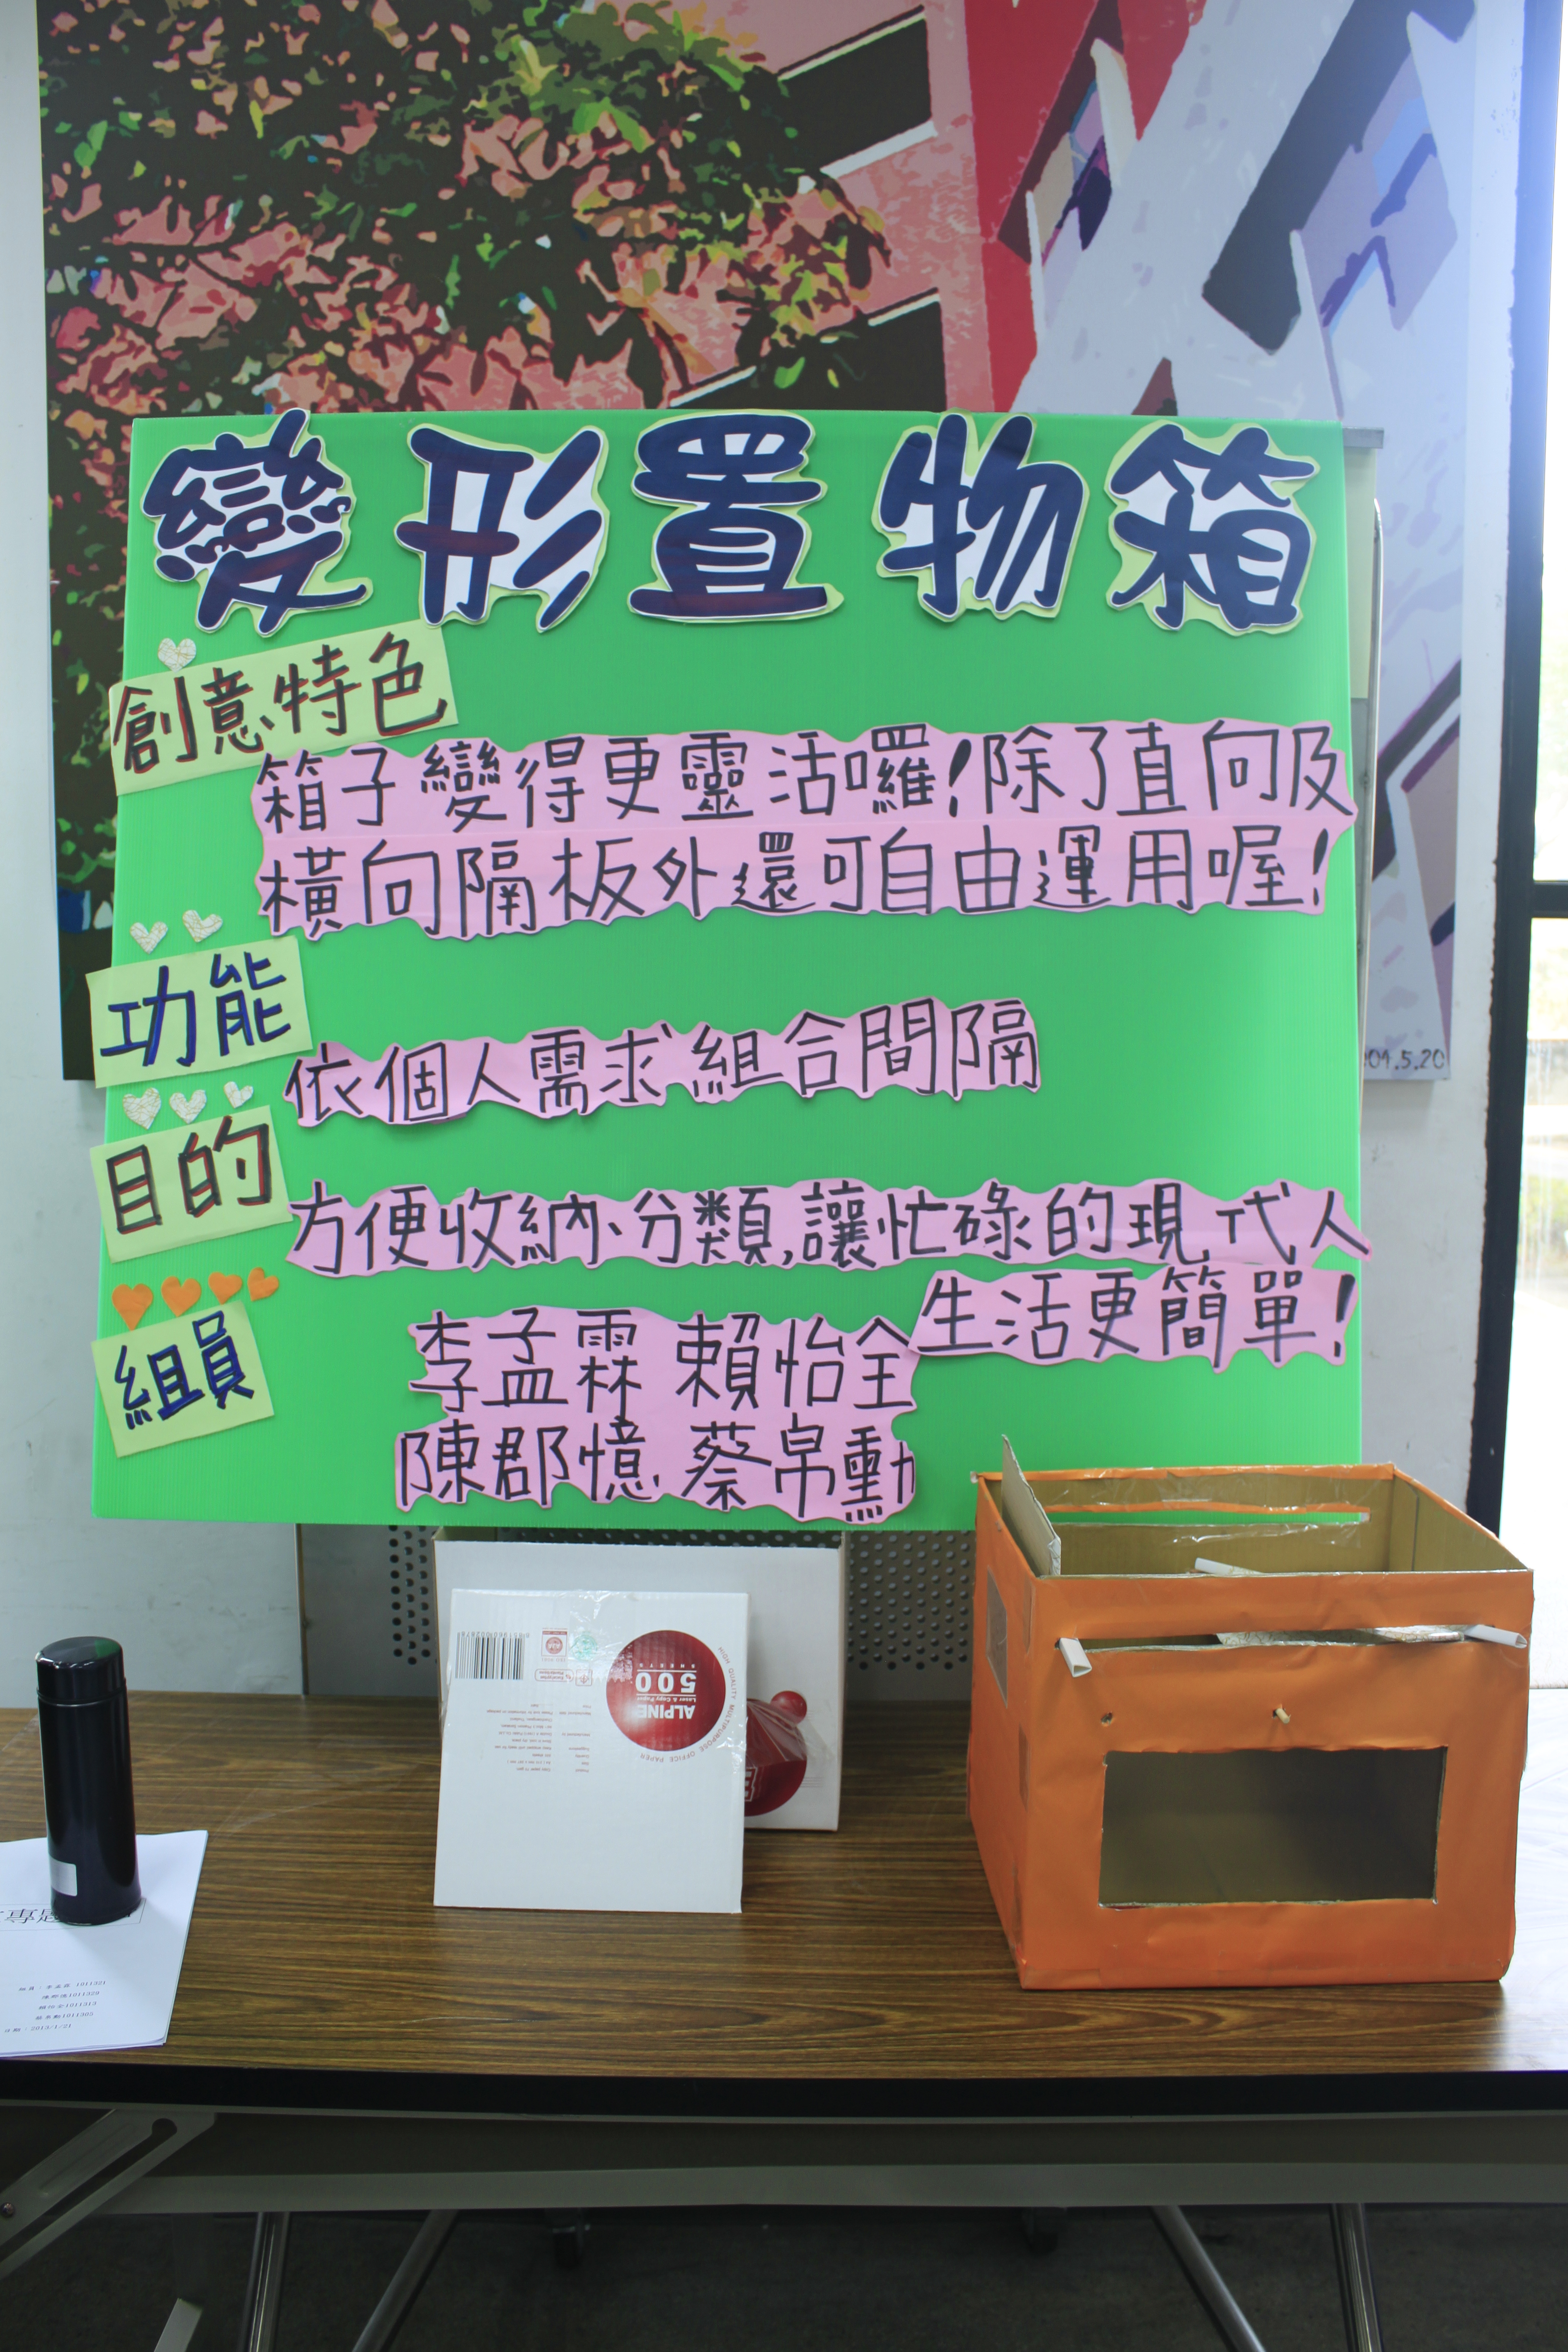 變形置物箱
創意特色
箱子變得更靈活囉!除了直向及
橫向隔板外還可自由運用喔!
功能
依個人需求組合間隔
目的
方便收納、分類,讓忙碌的現代人
生活更簡單!
組員
李孟霖 賴怡全
陳郡憶 蔡帛勳
04.5.20
ALPINE
Laser & Copy Paper
500
SHEETS
HIGH QUALITY MULTIPURPOSE OFFICE PAPER
1011321
1011313
2013/1/21